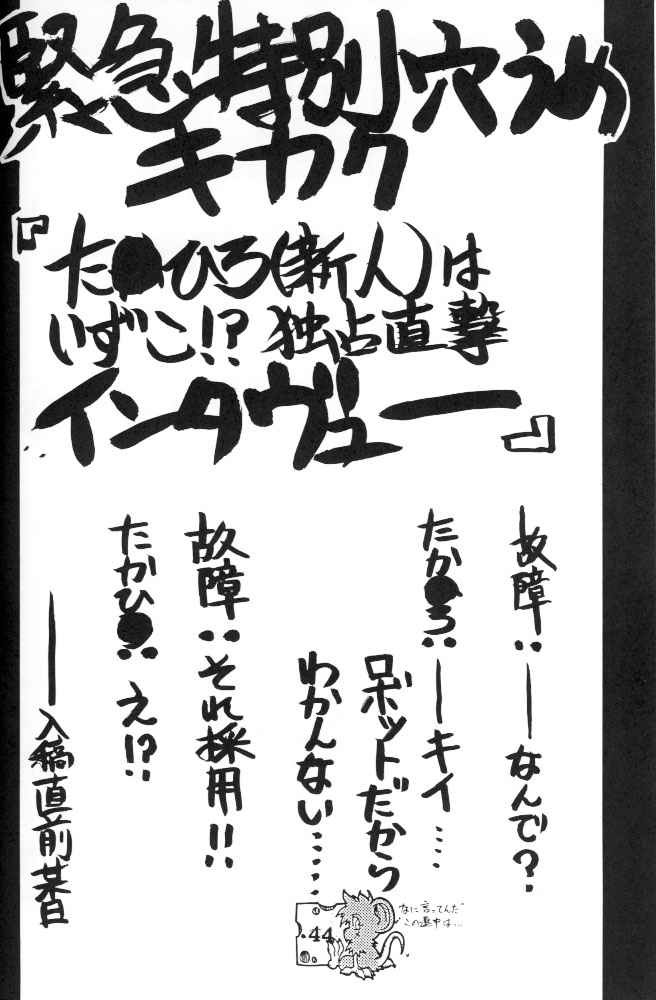 緊急特別穴うめ
キカク
『た●ひろ(新人)は
いずこ!? 独占直撃
インタヴュー』
―故障：―なんで？
たか●ろ：―キイ‥‥
ロボットだから
わかんない……
故障：それ採用!!
たかひ●：え!?
――入稿直前某日
なに言ってんだ
この連中は…
.44